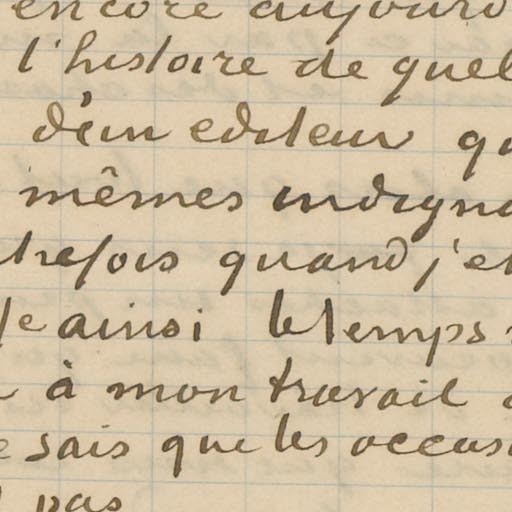 encore aujourd
l'histoire de quel
d'un editeur qu
mêmes indigna
trefois quand j'e
e ainsi le temps
à mon travail
e sais que les occas
pas